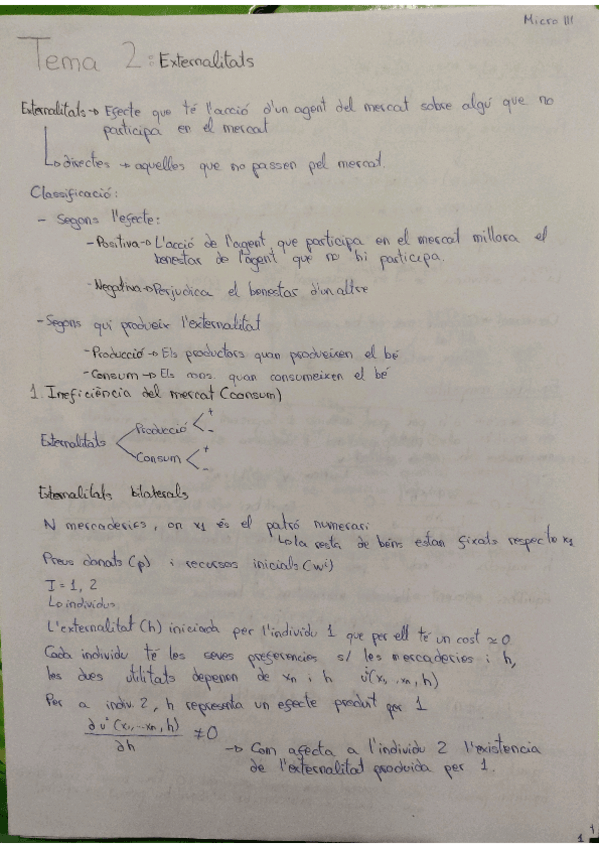 Micro III
Tema 2: Externalitats
Externalitats → Efecte que té l'acció d'un agent del mercat sobre algú que no
participa en el mercat
↳ directes → aquelles que no passen pel mercat.
Classificació:
- Segons l'efecte:
- Positiva → L'acció de l'agent que participa en el mercat millora el
benestar de l'agent que no hi participa.
- Negativa → Perjudica el benestar d'un altre
- Segons qui produeix l'externalitat
- Producció → Els productors quan produeixen el bé
- Consum → Els cons. quan consumeixen el bé
1. Ineficiència del mercat (consum)
Externalitats < Producció < + -
Consum < + -
Externalitats bilaterals
N mercaderies, on x1 és el patró numerari
↳ la resta de béns estan fixats respecto x1
Preus donats (p) i recursos inicials (wⁱ)
I = 1, 2
↳ individus
L'externalitat (h) iniciada per l'individu 1 que per ell té un cost ≈ 0
Cada individu té les seves preferències s/ les mercaderies i h,
les dues utilitats depenen de xn i h uⁱ(x1, ..xn, h)
Per a indiv. 2, h representa un efecte produit per 1
∂u²(x1, ... xn, h) / ∂h ≠ 0
→ Com afecta a l'individu 2 l'existència
de l'externalitat produida per 1.
1
1